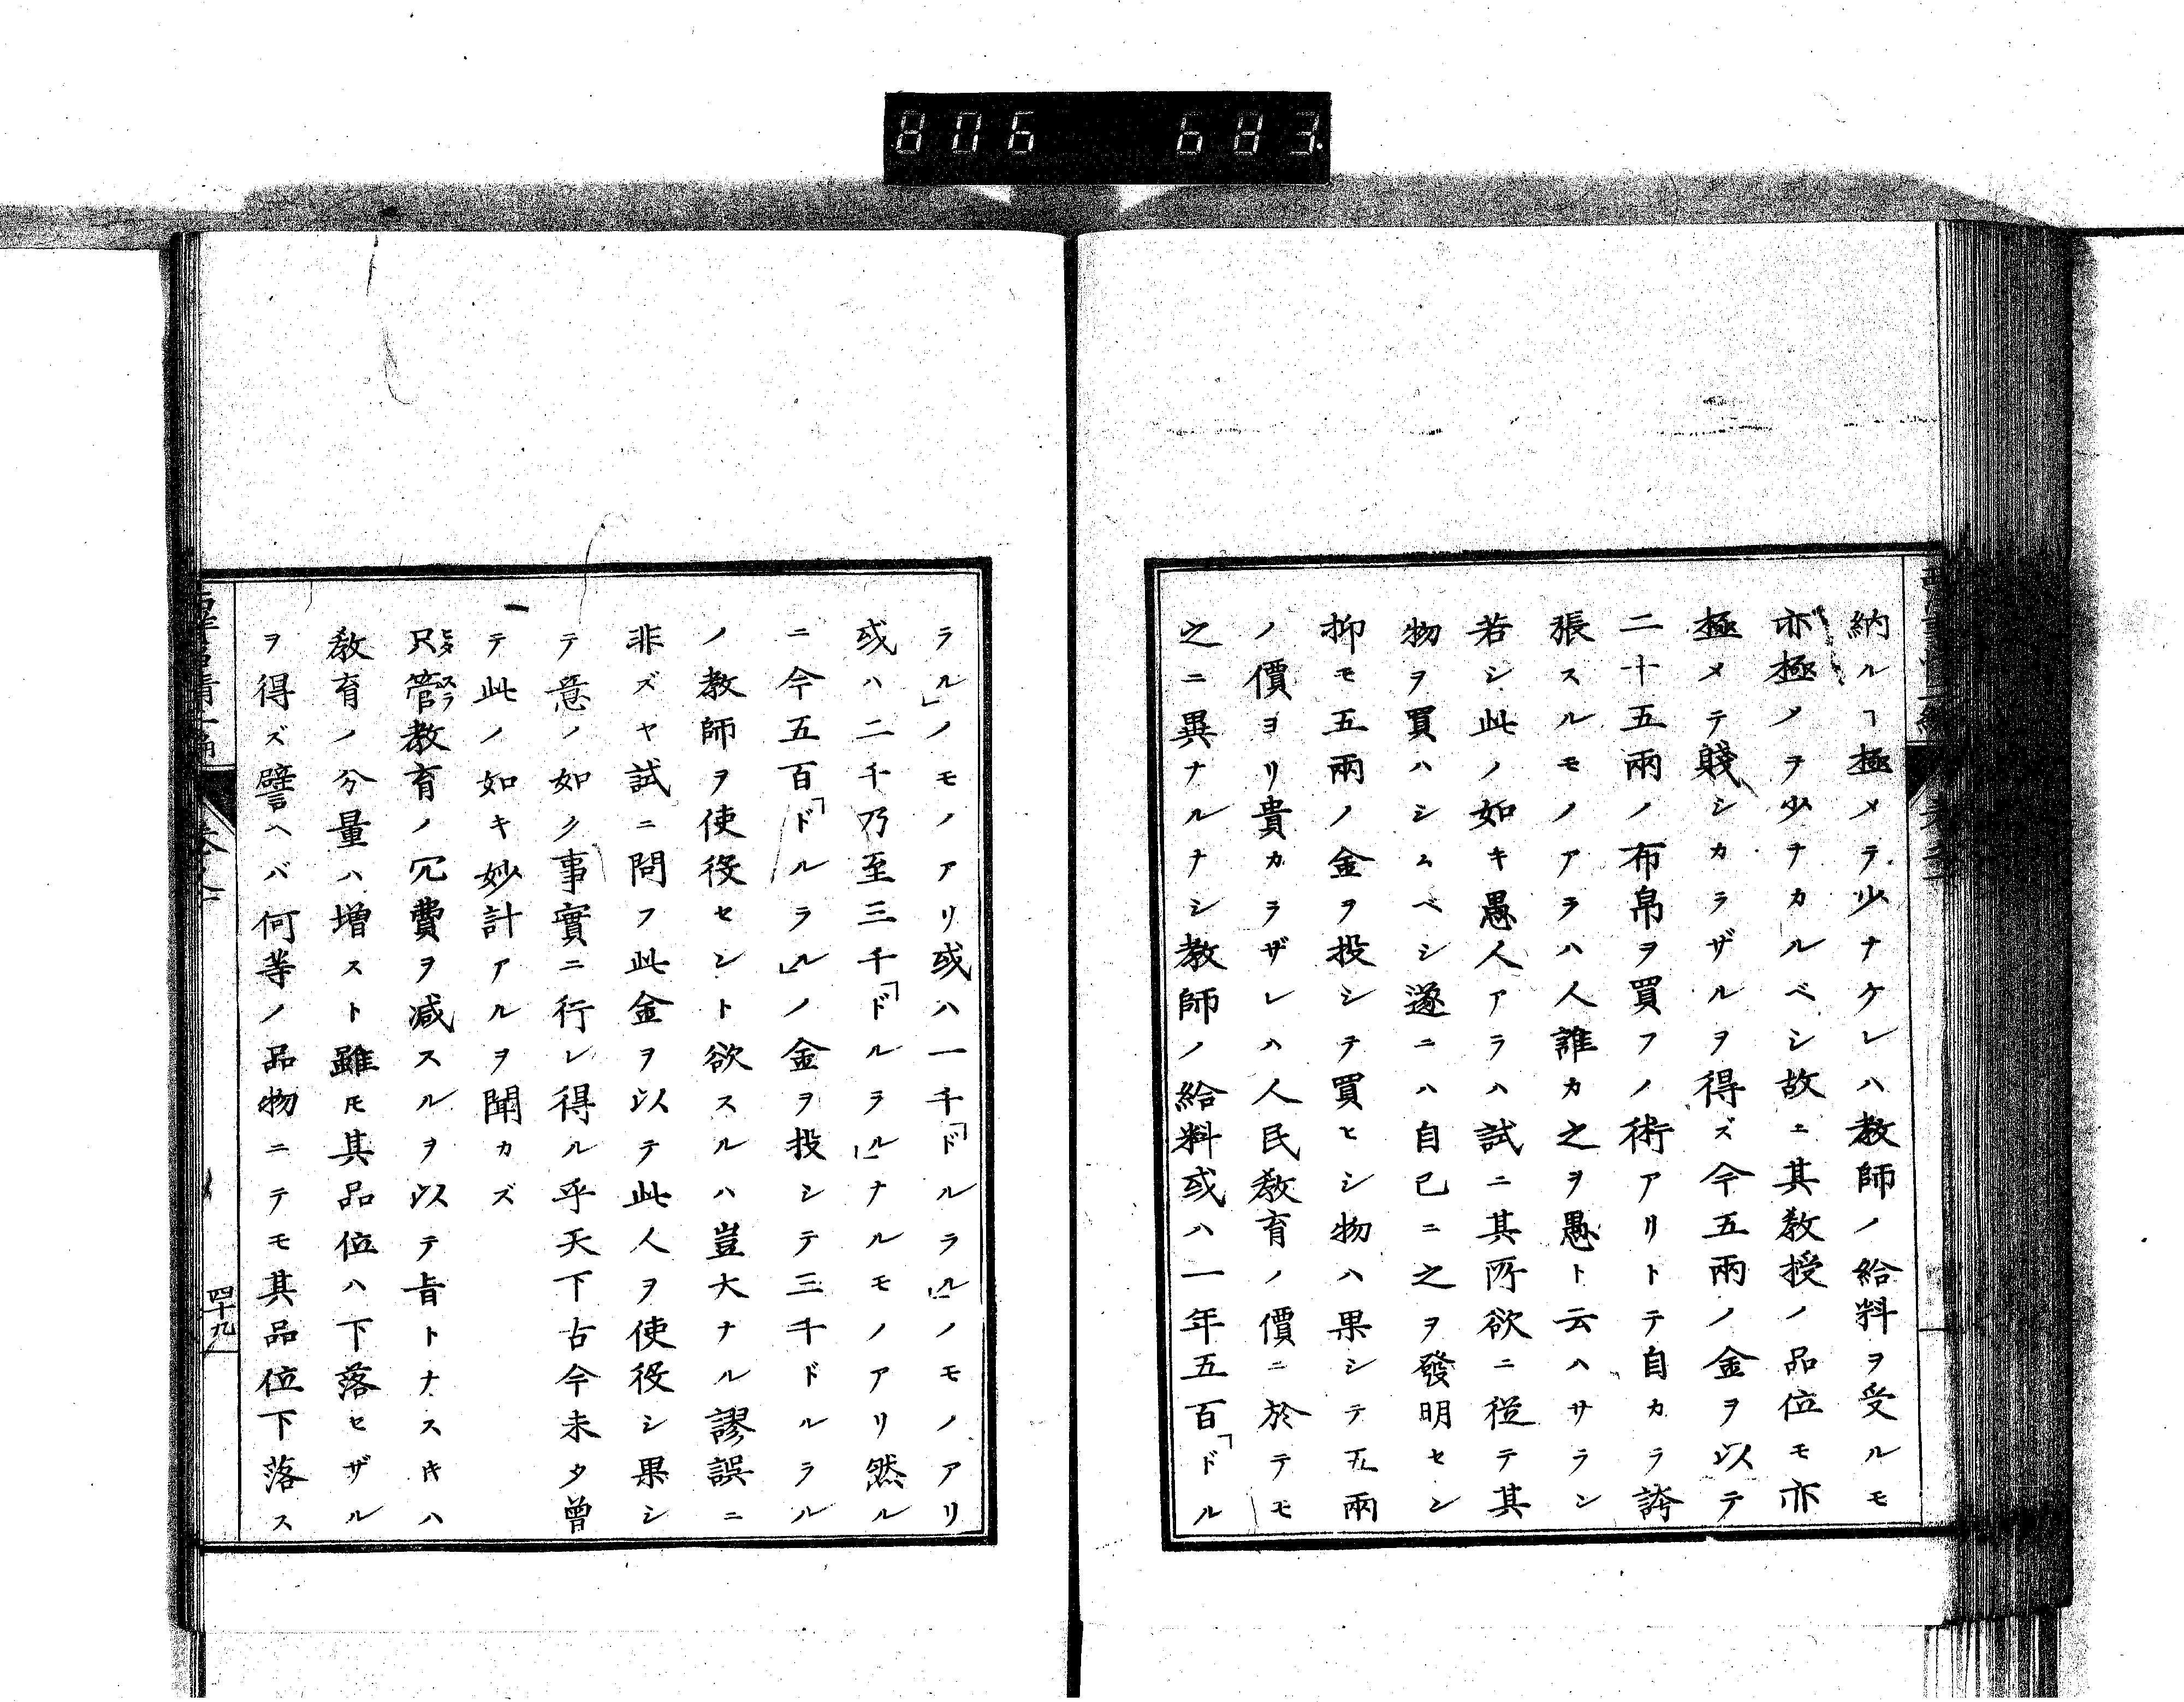 806 683
納ルヿ極メテ少ナケレハ教師ノ給料ヲ受ルモ
亦極メテ少ナカルベシ故ニ其教授ノ品位モ亦
極メテ賤シカラザルヲ得ズ今五兩ノ金ヲ以テ
二十五兩ノ布帛ヲ買フノ術アリトテ自カラ誇
張スルモノアラハ人誰カ之ヲ愚ト云ハサラン
若シ此ノ如キ愚人アラハ試ニ其所欲ニ從テ其
物ヲ買ハシムベシ遂ニハ自己ニ之ヲ發明セン
抑モ五兩ノ金ヲ投シテ買ヒシ物ハ果シテ五兩
ノ價ヨリ貴カラザレハ人民教育ノ價ニ於テモ
之ニ異ナルナシ教師ノ給料或ハ一年五百「ドル
ラル」ノモノアリ或ハ一千「ドルラル」ノモノアリ
或ハ二千乃至三千「ドルラル」ナルモノアリ然ル
ニ今五百「ドルラル」ノ金ヲ投シテ三千ドルラル
ノ教師ヲ使役セント欲スルハ豈大ナル謬誤ニ
非ズヤ試ニ問フ此金ヲ以テ此人ヲ使役シ果シ
テ意ノ如ク事實ニ行レ得ル乎天下古今未タ曾
テ此ノ如キ妙計アルヲ聞カズ
只管教育ノ冗費ヲ減スルヲ以テ旨トナスキハ
教育ノ分量ハ増スト雖モ其品位ハ下落セザル
ヲ得ズ譬ヘバ何等ノ品物ニテモ其品位下落ス
四十九